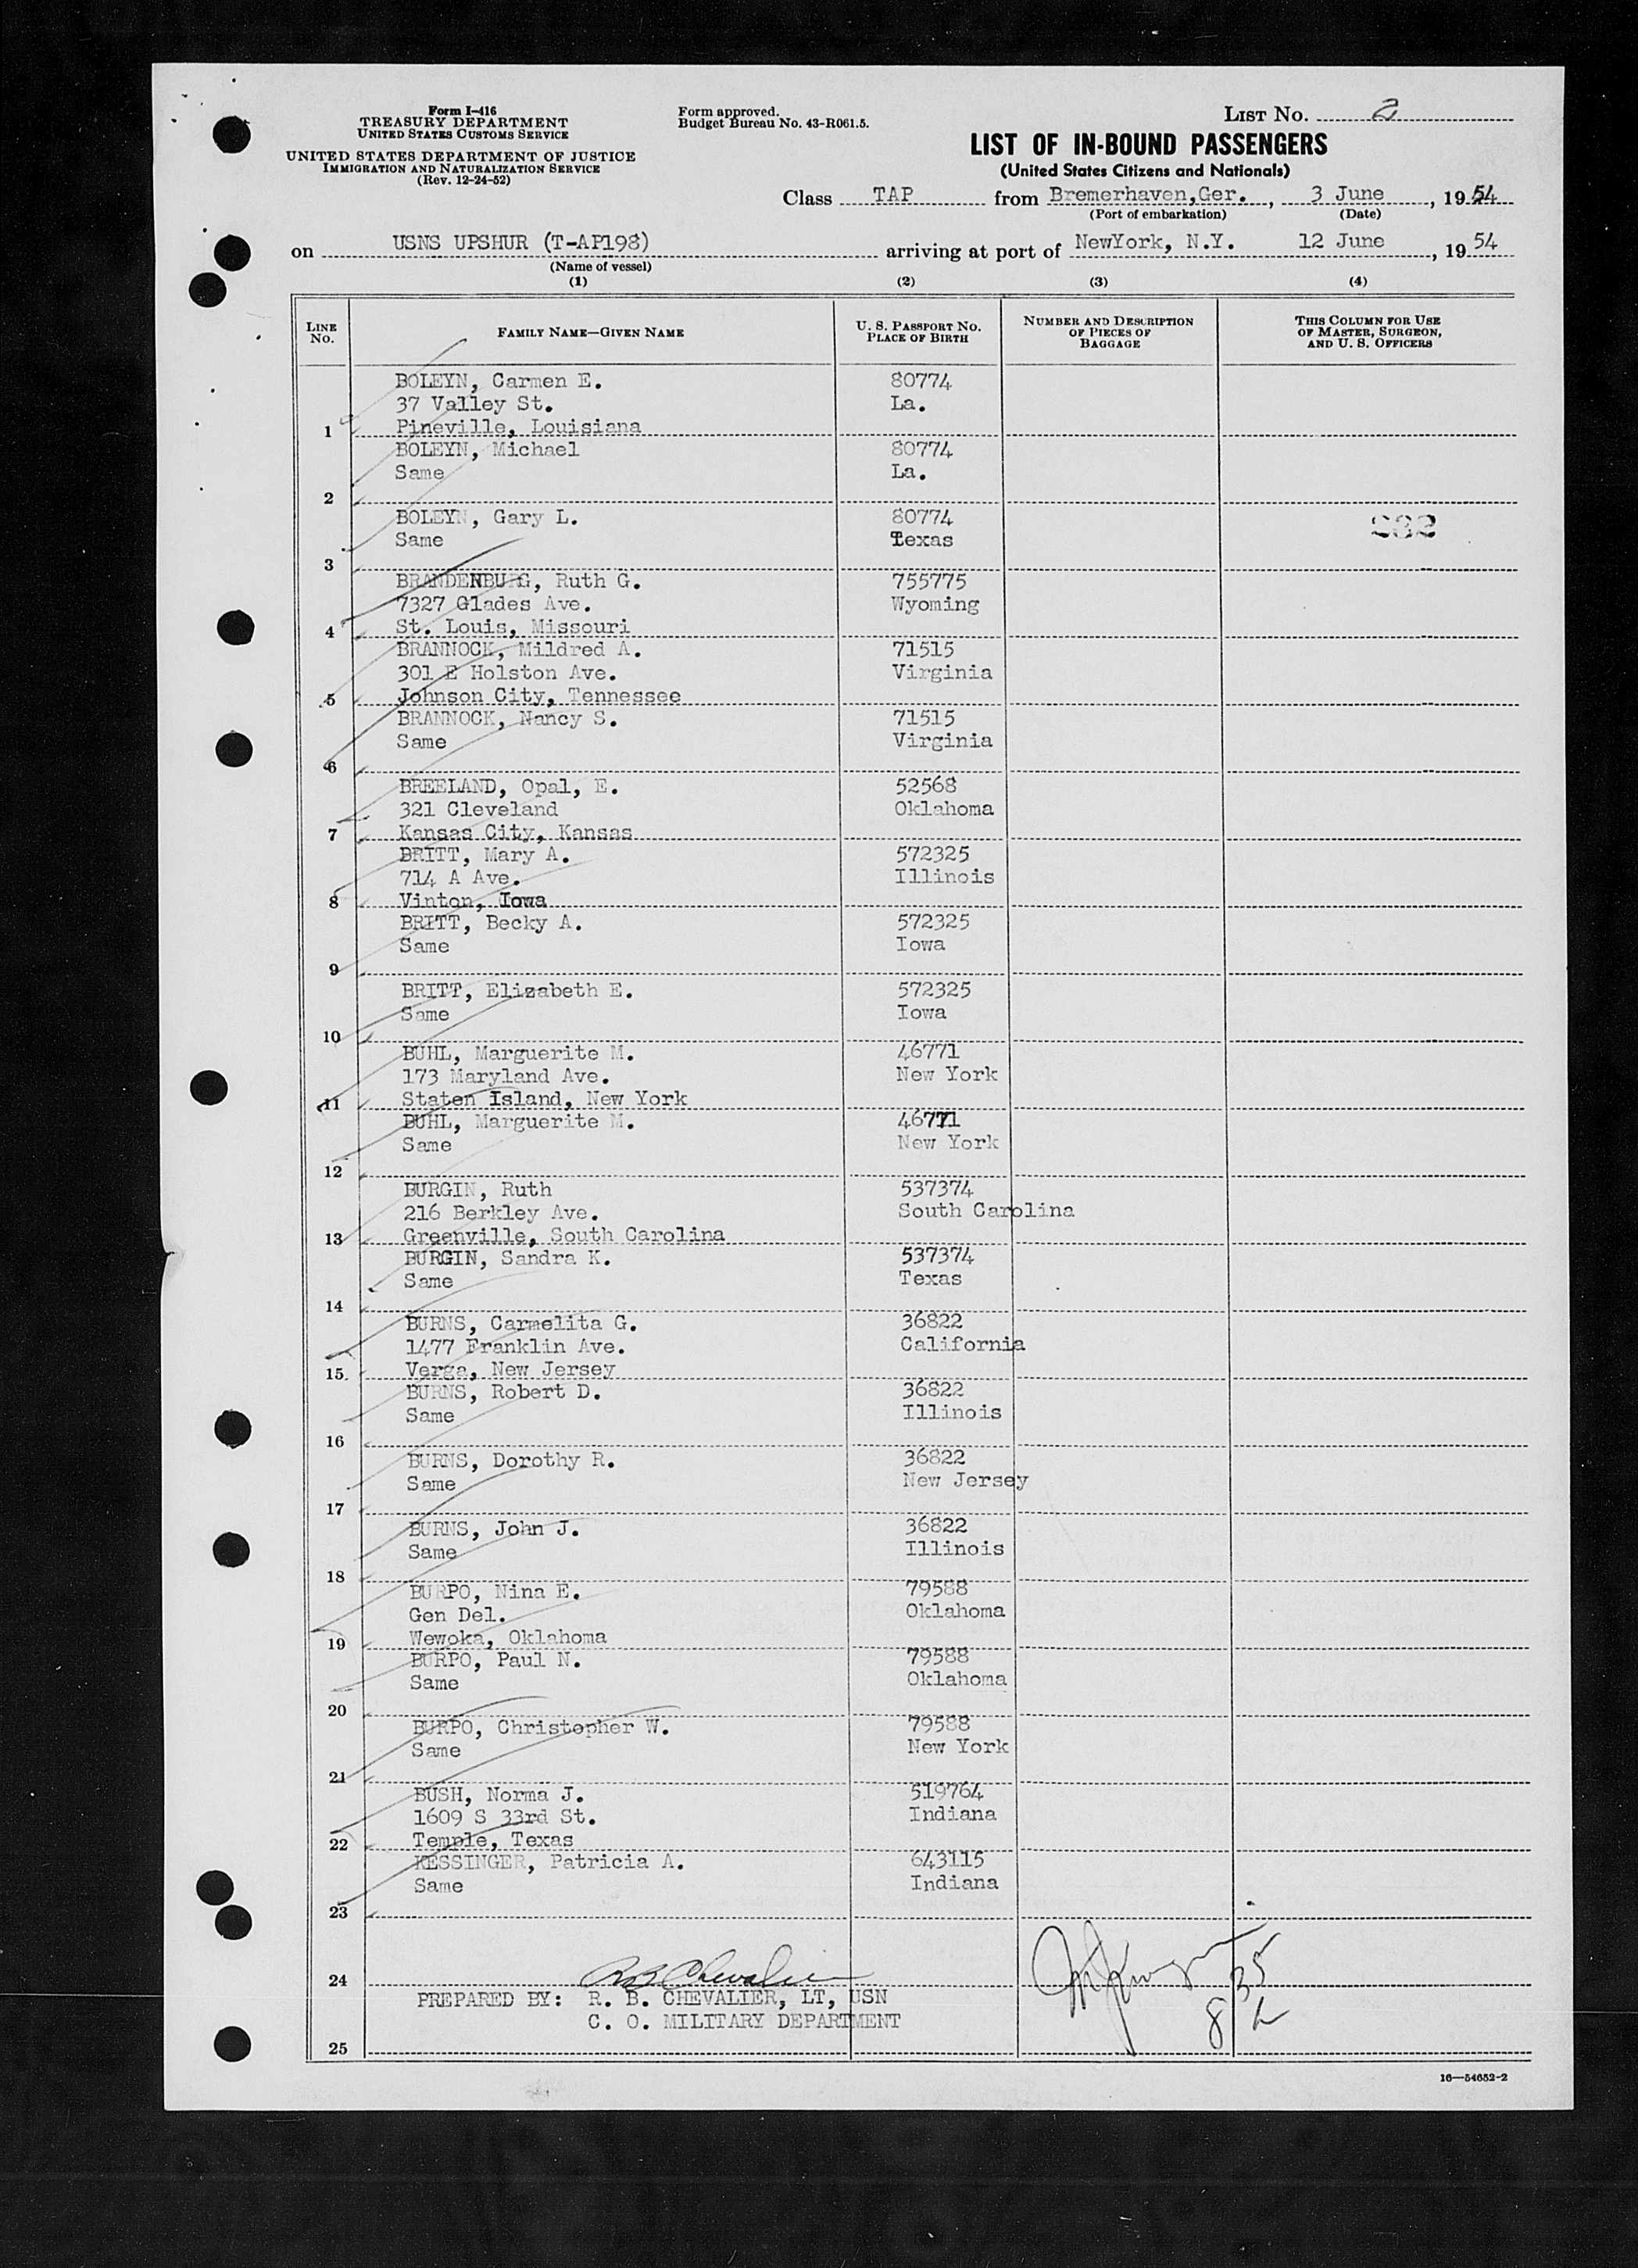 Form I-416
TREASURY DEPARTMENT
UNITED STATES CUSTOMS SERVICE
UNITED STATES DEPARTMENT OF JUSTICE
IMMIGRATION AND NATURALIZATION SERVICE
(Rev. 12-24-52)
Form approved.
Budget Bureau No. 43-R061.5.
LIST No. 2
LIST OF IN-BOUND PASSENGERS
(United States Citizens and Nationals)
Class TAP from Bremerhaven,Ger., 3 June, 1954
(Port of embarkation) (Date)
on USNS UPSHUR (T-AP198) arriving at port of NewYork, N.Y. 12 June, 1954
(Name of vessel)
(1) (2) (3) (4)
LINE No. FAMILY NAME—GIVEN NAME U. S. PASSPORT No. PLACE OF BIRTH NUMBER AND DESCRIPTION OF PIECES OF BAGGAGE THIS COLUMN FOR USE OF MASTER, SURGEON, AND U. S. OFFICERS
BOLEYN, Carmen E. 80774
37 Valley St. La.
1 Pineville, Louisiana
BOLEYN, Michael 80774
Same La.
2
BOLEYN, Gary L. 80774 232
Same Texas
3
BRANDENBURG, Ruth G. 755775
7327 Glades Ave. Wyoming
4 St. Louis, Missouri
BRANNOCK, Mildred A. 71515
301 E Holston Ave. Virginia
5 Johnson City, Tennessee
BRANNOCK, Nancy S. 71515
Same Virginia
6
BREELAND, Opal, E. 52568
321 Cleveland Oklahoma
7 Kansas City, Kansas
BRITT, Mary A. 572325
714 A Ave. Illinois
8 Vinton, Iowa
BRITT, Becky A. 572325
Same Iowa
9
BRITT, Elizabeth E. 572325
Same Iowa
10
BUHL, Marguerite M. 46771
173 Maryland Ave. New York
11 Staten Island, New York
BUHL, Marguerite M. 46771
Same New York
12
BURGIN, Ruth 537374
216 Berkley Ave. South Carolina
13 Greenville, South Carolina
BURGIN, Sandra K. 537374
Same Texas
14
BURNS, Carmelita G. 36822
1477 Franklin Ave. California
15 Verga, New Jersey
BURNS, Robert D. 36822
Same Illinois
16
BURNS, Dorothy R. 36822
Same New Jersey
17
BURNS, John J. 36822
Same Illinois
18
BURPO, Nina E. 79588
Gen Del. Oklahoma
19 Wewoka, Oklahoma
BURPO, Paul N. 79588
Same Oklahoma
20
BURPO, Christopher W. 79588
Same New York
21
BUSH, Norma J. 519764
1609 S 33rd St. Indiana
22 Temple, Texas
KESSINGER, Patricia A. 643115
Same Indiana
23
24 RB Chevalier
PREPARED BY: R. B. CHEVALIER, LT, USN
C. O. MILITARY DEPARTMENT
25
16—54652-2